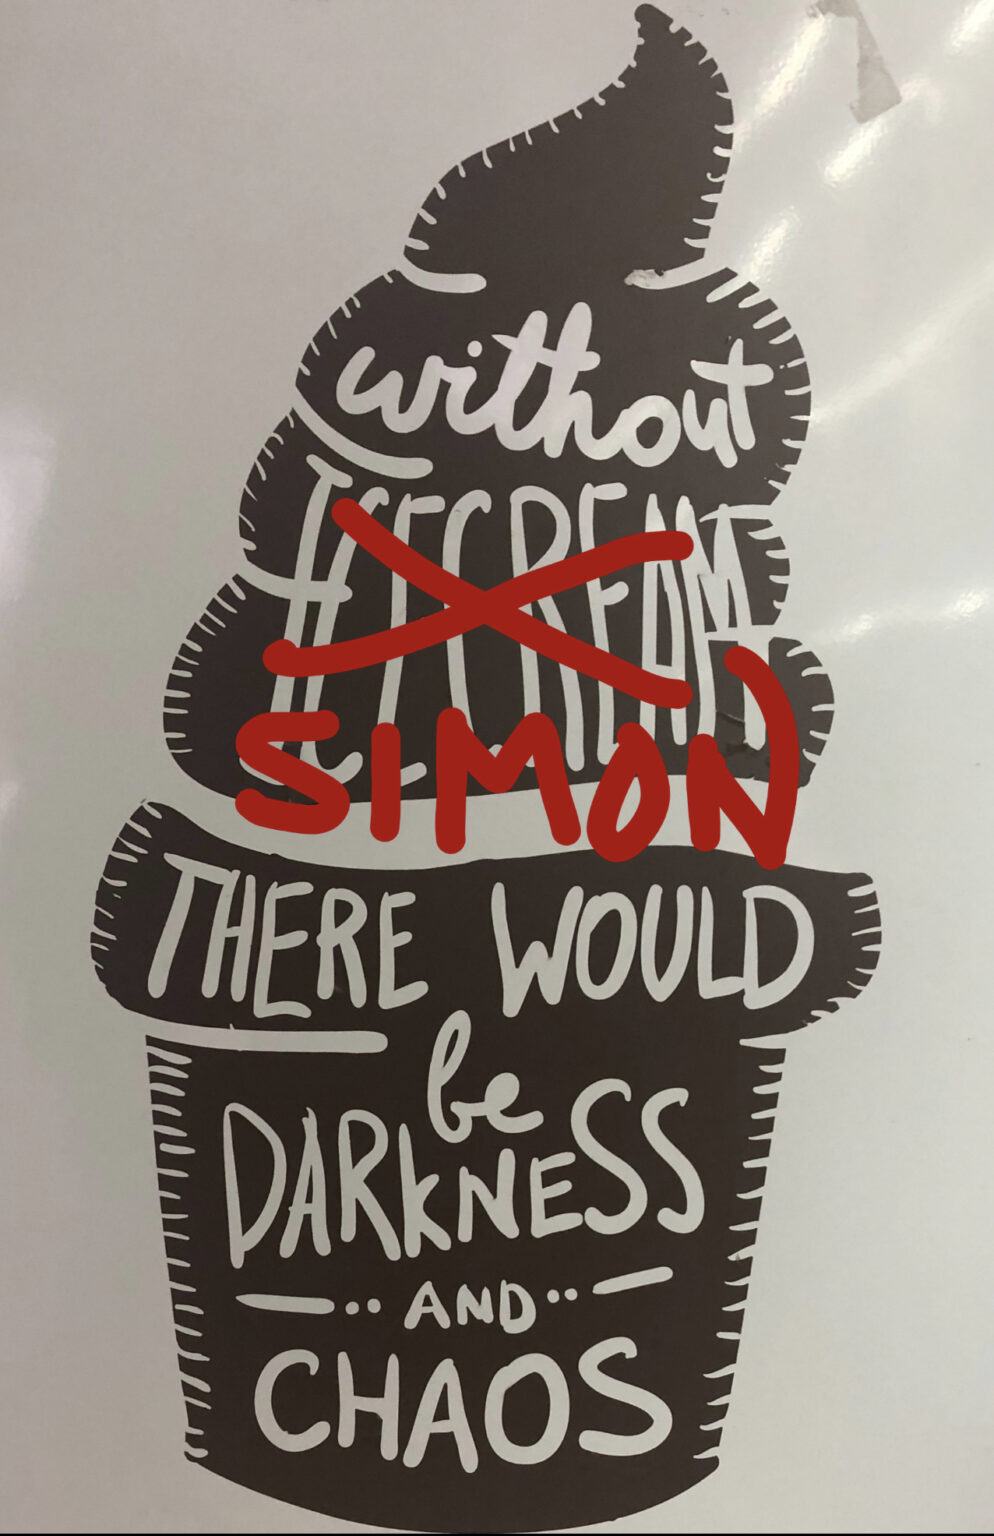 without
ICECREAM
SIMON
THERE WOULD
be
DARKNESS
AND
CHAOS